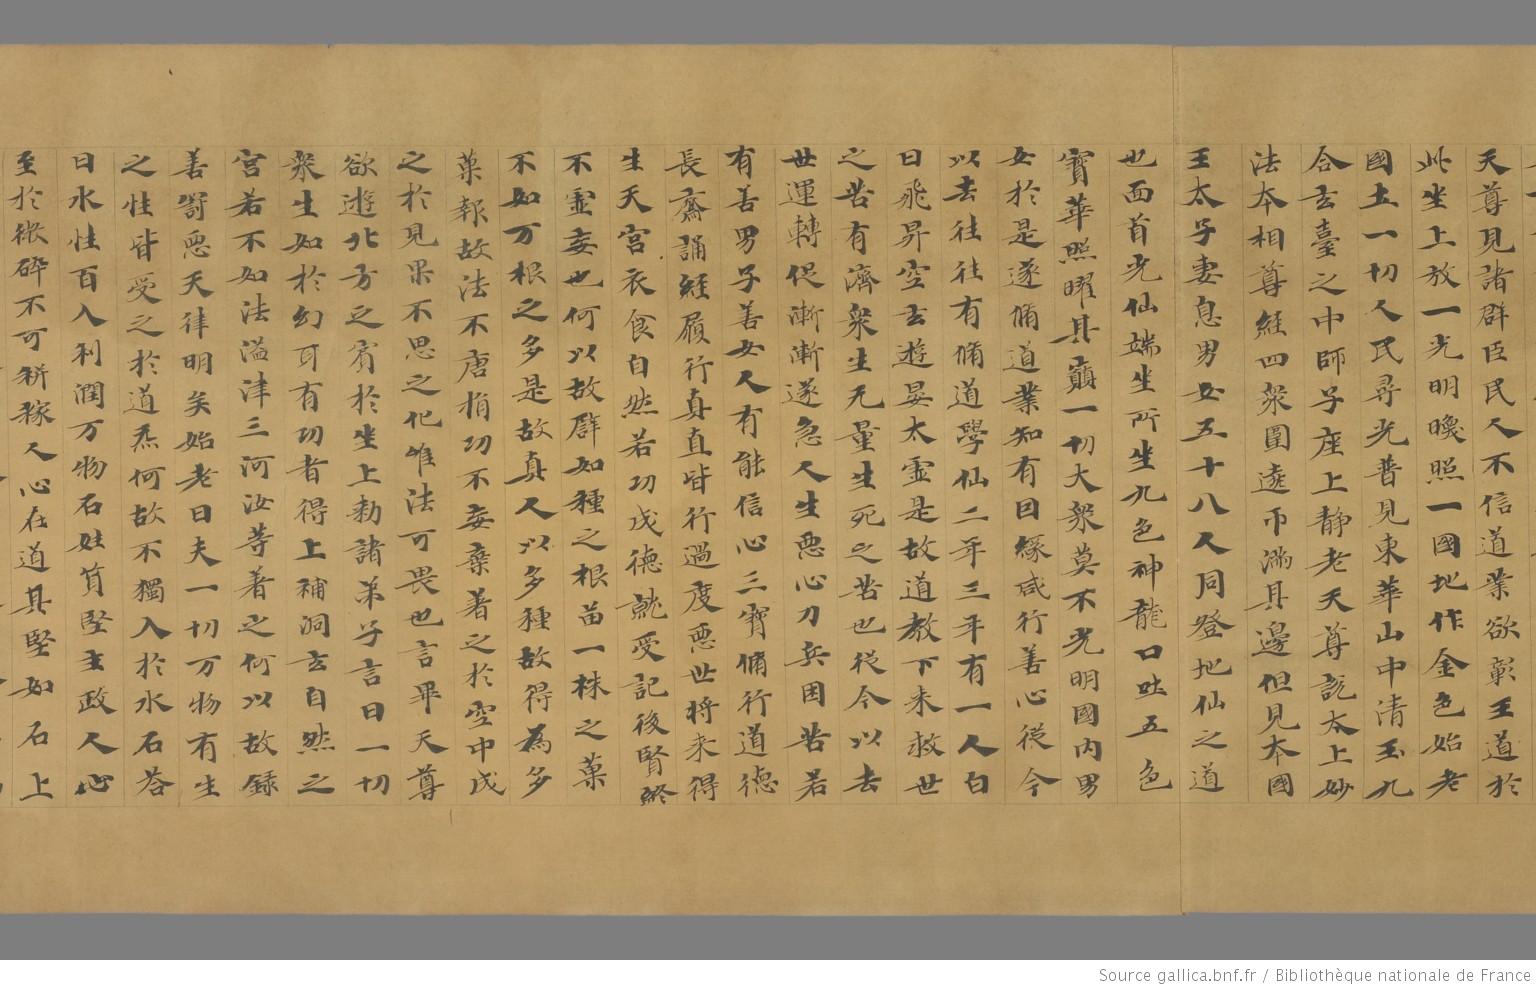 天尊見諸群臣民人不信道業欲彰王道於
此坐上放一光明曒照一國地作金色始老
國土一切人民尋光普見東華山中清玉九
合玄臺之中師子座上靜老天尊說太上妙
法本相尊經四衆圍遶帀滿其邊但見本國
王太子妻息男女五十八人同登地仙之道
也面首光仙端坐所坐九色神龍口吐五色
寶華照曜其巔一切大衆莫不光明國内男
女於是遂脩道業知有因緣咸行善心從今
以去往往有脩道學仙二年三年有一人白
日飛昇空玄遊晏太霊是故道教下來救世
之苦有濟衆生无量生死之苦也從今以去
世運轉促漸漸遂急人生惡心刀兵困苦若
有善男子善女人有能信心三寶脩行道德
長齋誦經履行真直皆行過度惡世將来得
生天宮衣食自然若功成德就受記後賢終
不霊妄也何以故譬如種之根苗一株之菓
不如万根之多是故真人以多種故得為多
菓報故法不唐捐功不妄棄著之於空中成
之於見果不思之化唯法可畏也言畢天尊
欲遊北方之賓於坐上勑諸弟子言曰一切
衆生如於幻耳有功者得上補洞玄自然之
宮若不如法溢津三河汝等著之何以故錄
善罰惡天律明矣始老曰夫一切万物有生
之性皆受之於道炁何故不獨入於水石荅
曰水性百入利潤万物石姓質堅主政人心
至於微碎不可耕稼人心在道其堅如石上